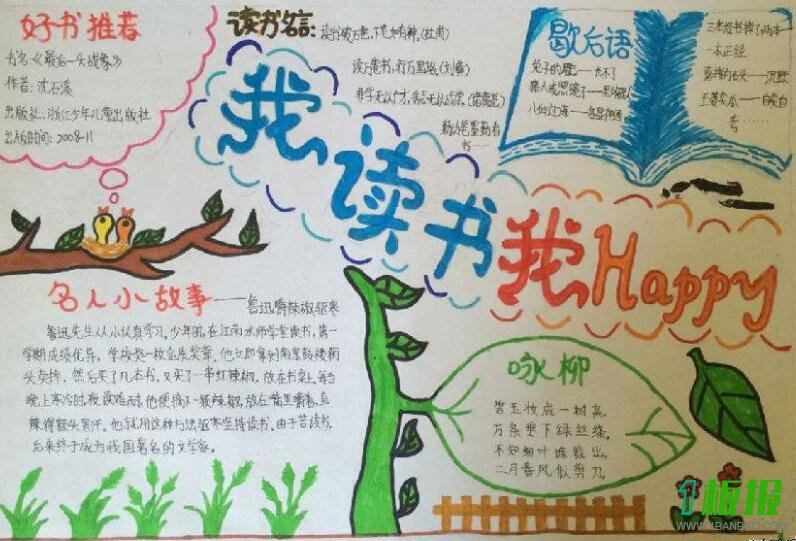 好书推荐
书名:《最后一头战象》
作者:沈石溪
出版社:浙江少年儿童出版社
出版时间:2008-11
读书名言:读书破万卷,下笔如有神。(杜甫)
读万卷书,行万里路。(刘彝)
非学无以广才,非志无以成学。(诸葛亮)
歇后语
兔子的尾巴——长不了
八仙过海——各显神通
三本经书掉了两本
一本正经
王婆卖瓜——自卖自夸
我读书我Happy
名人小故事——鲁迅嚼辣椒驱寒
鲁迅先生从小认真学习。少年时,在江南水师学堂读书,第一
学期成绩优异,学校奖一枚金质奖章。他立即拿到南京鼓楼街
头卖掉,然后买了几本书,又买了一串红辣椒,放在书桌上。每当
晚上寒冷时,夜读难耐,他便摘下一颗辣椒,放在嘴里嚼着,直
辣得额头冒汗。他就用这种办法驱寒坚持读书。由于苦读书,
后来终于成为我国著名的文学家。
咏柳
碧玉妆成一树高,
万条垂下绿丝绦。
不知细叶谁裁出,
二月春风似剪刀。
板报
WWW.1BANBAO.COM